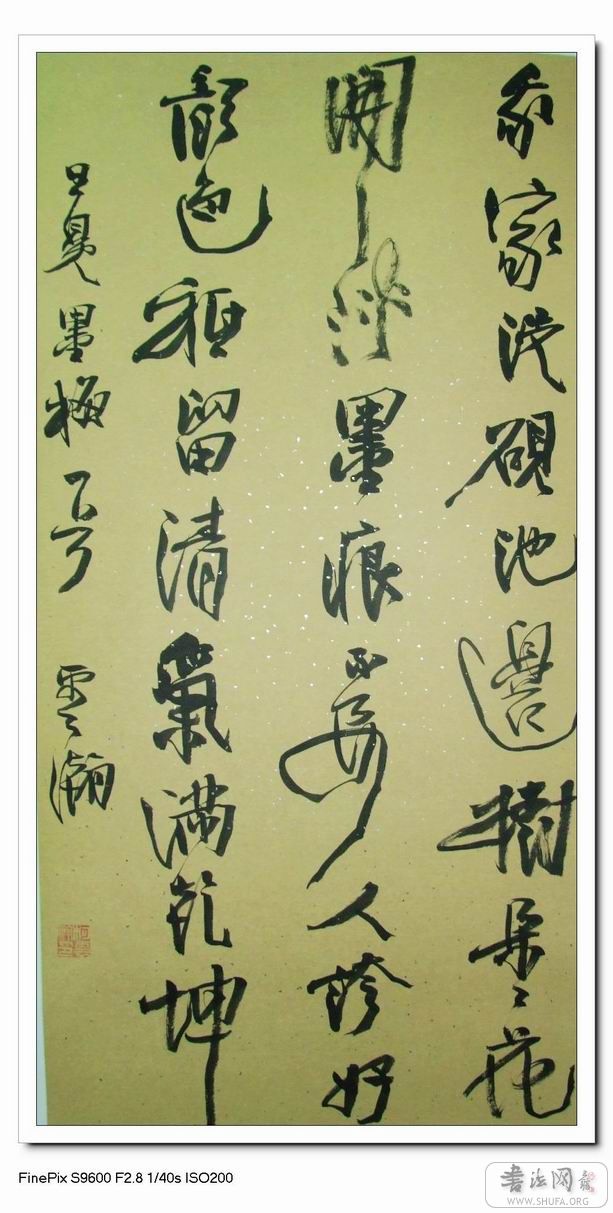 我家洗硯池邊樹朵〻花
開淡墨痕不要人誇好
顏色秪留清氣滿乾坤
王冕墨梅一首 雲瀚
FinePix S9600 F2.8 1/40s ISO200
书法网
WWW.SHUFA.ORG